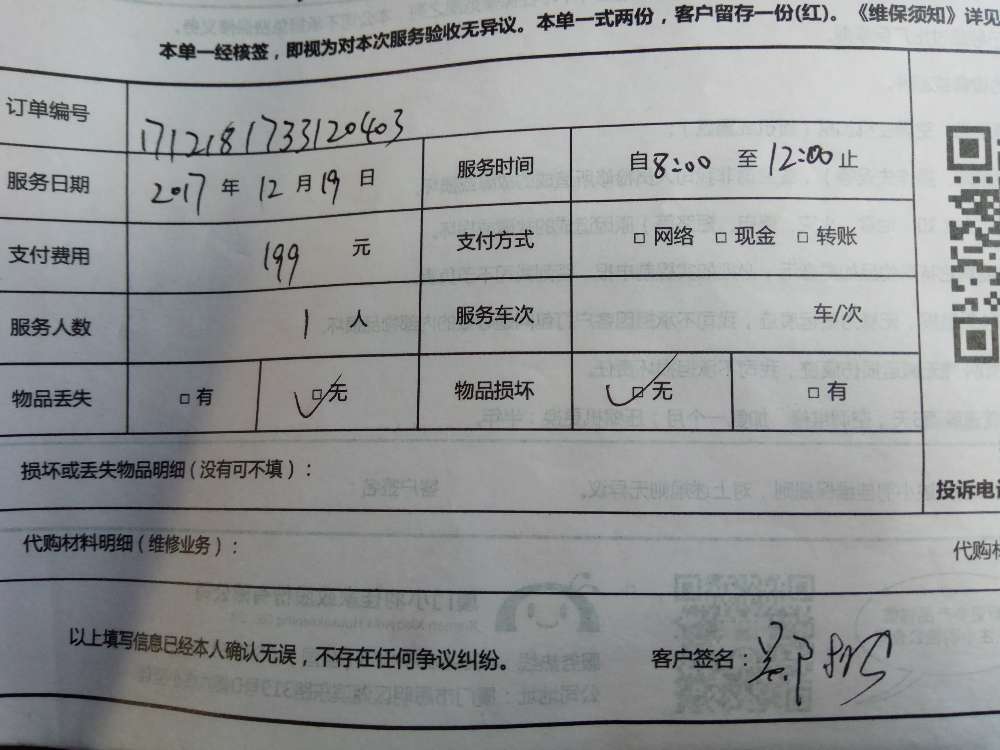 本单一经核签，即视为对本次服务验收无异议。本单一式两份，客户留存一份(红)。《维保须知》详见
订单编号 1712181733120403
服务日期 2017 年 12 月 19 日 服务时间 自 8:00 至 12:00 止
支付费用 199 元 支付方式 □ 网络 □ 现金 □ 转账
服务人数 1 人 服务车次 车/次
物品丢失 □ 有 □ 无 物品损坏 □ 无 □ 有
损坏或丢失物品明细（没有可不填）：
投诉电
代购材料明细（维修业务）：
代购
以上填写信息已经本人确认无误，不存在任何争议纠纷。 客户签名：